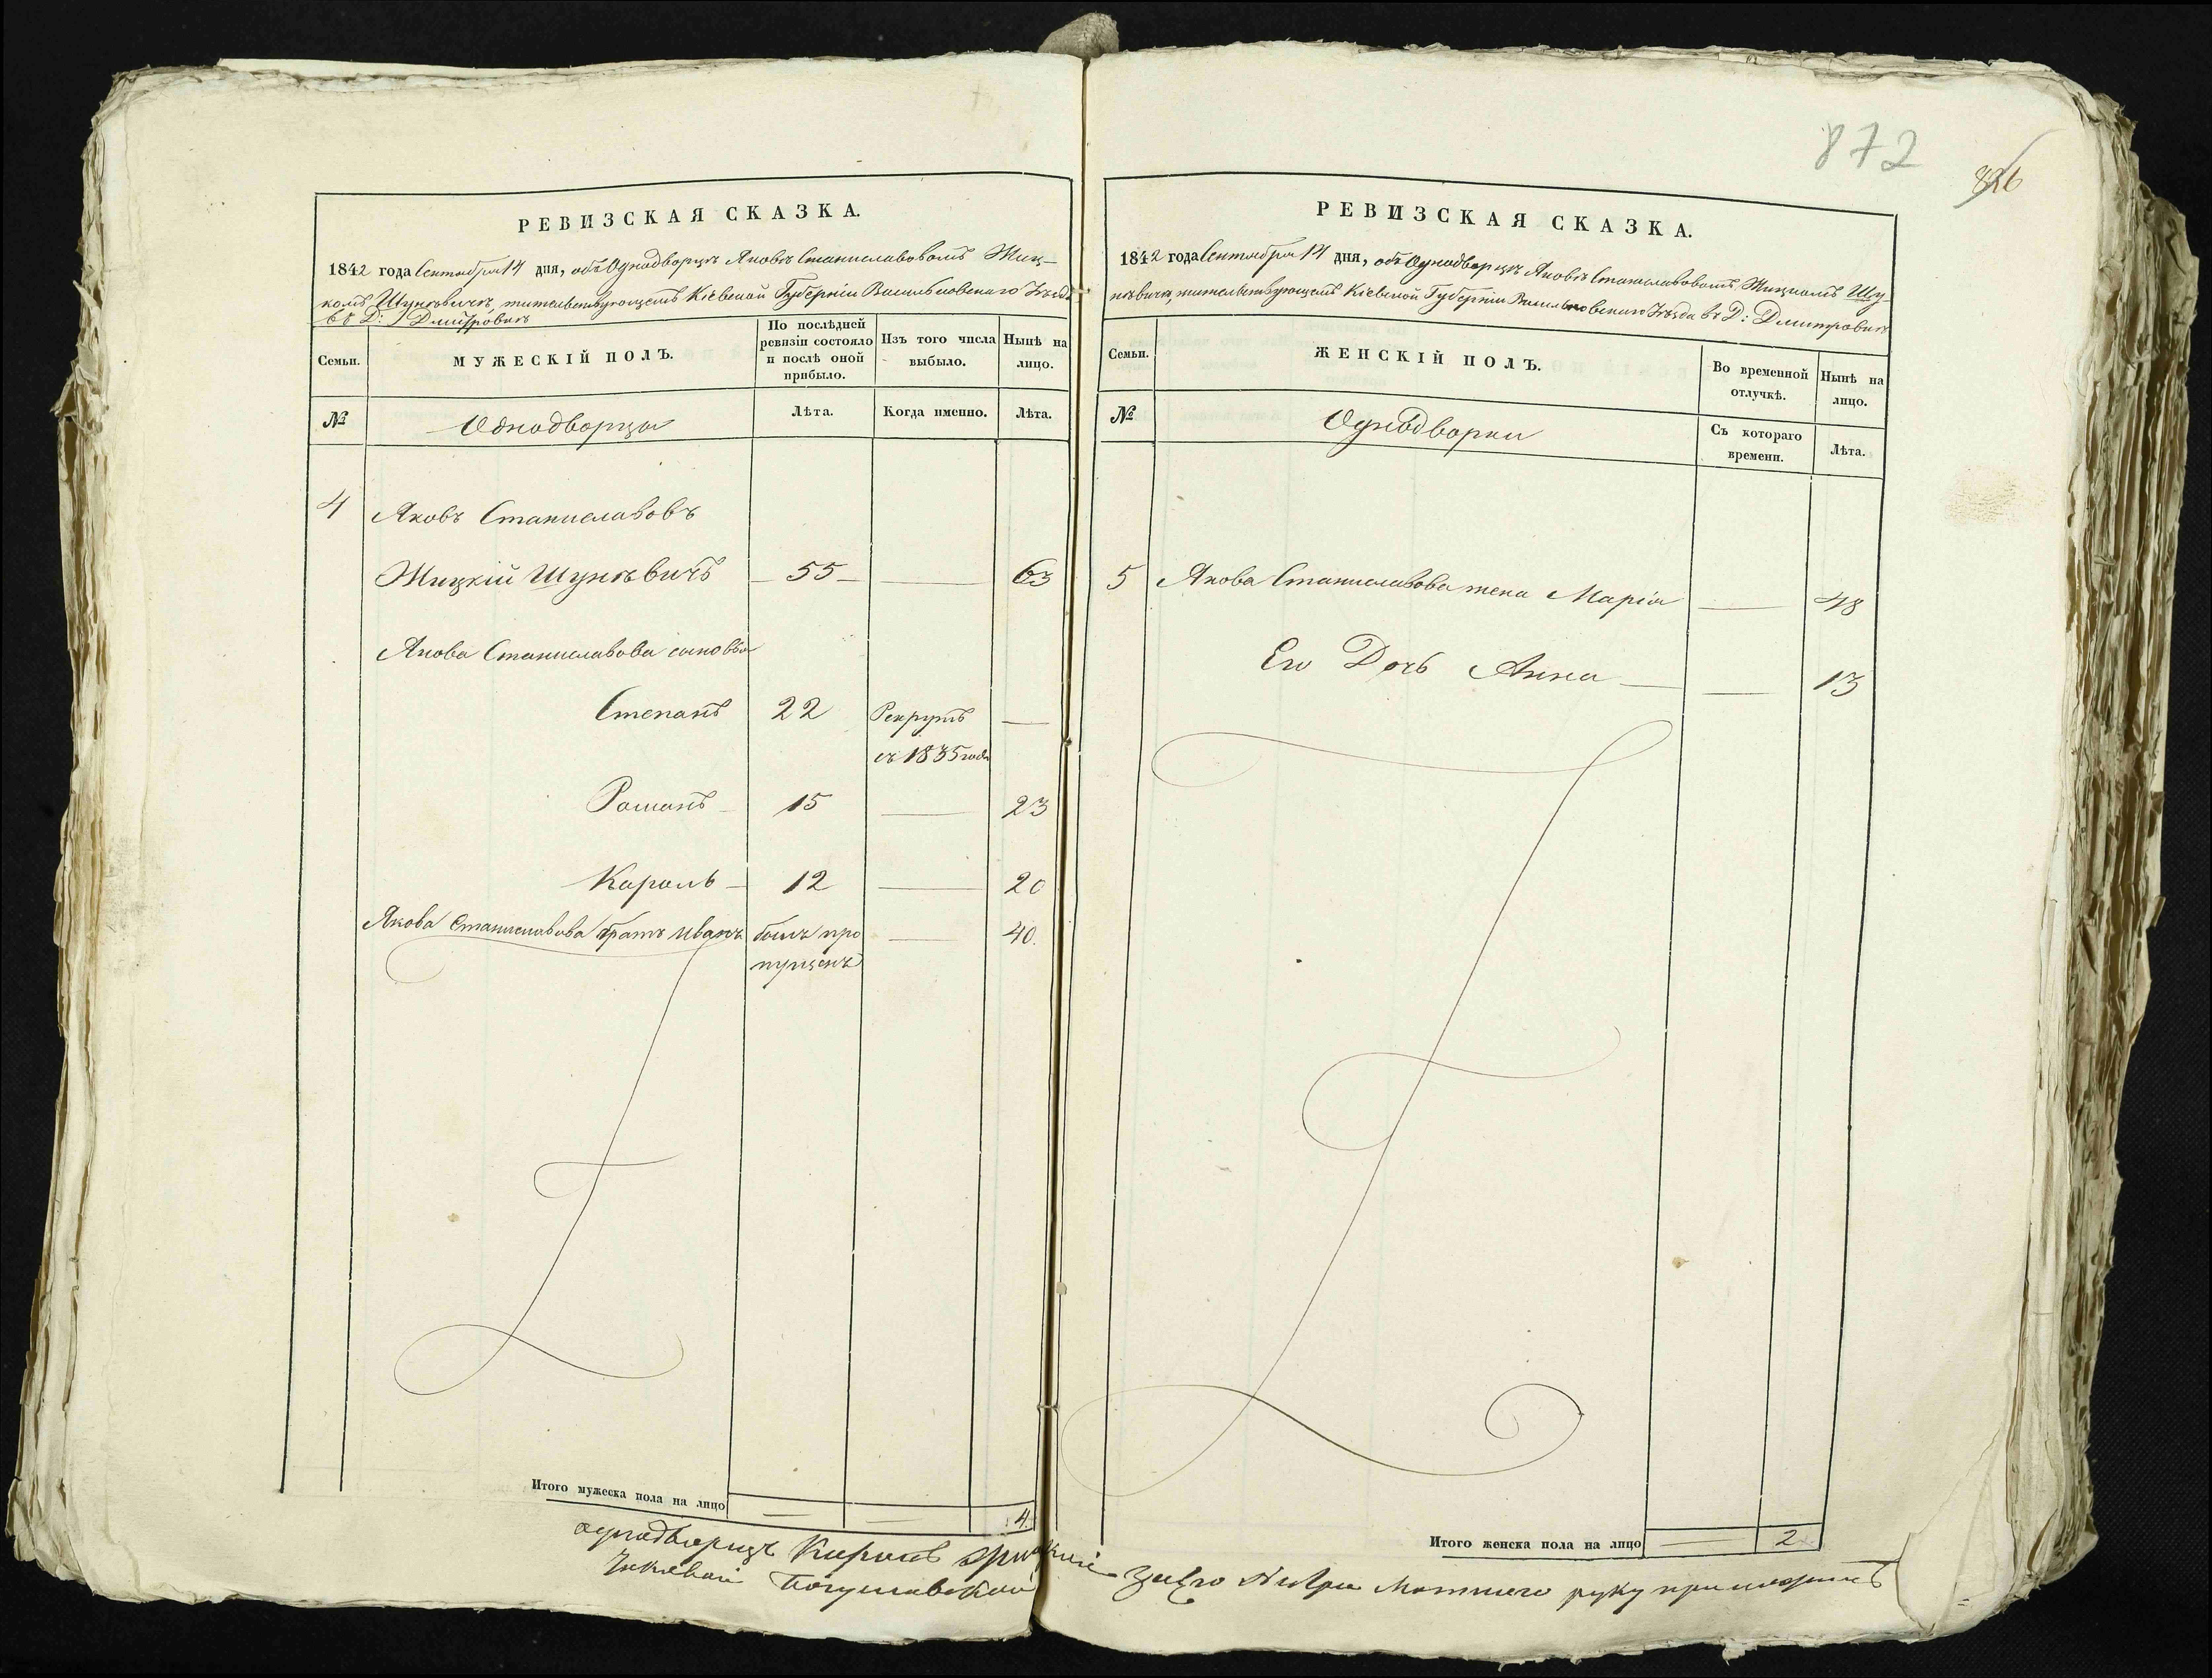 РЕВИЗСКАЯ СКАЗКА.
1842 года Сентября 14 дня, объ Однодворцѣ Яковѣ Станиславовомъ Жиц-
комъ Шункевичѣ, жительствующемъ Кіевской Губерніи Васильковскаго Уѣзда
въ Д: Дмитровкѣ
Семьи.
МУЖЕСКІЙ ПОЛЪ.
По послѣдней ревизіи состояло и послѣ оной прибыло.
Изъ того числа выбыло.
Нынѣ на лицо.
№
Однодворцы
Лѣта.
Когда именно.
Лѣта.
4 Яковъ Станиславовъ
Жицкій Шункѣвичъ — 55 — — 63
Якова Станиславова сыновья
Степанъ 22 Рекрутъ —
съ 1835 года
Романъ — 15 — 23
Кароль — 12 — 20
Якова Станиславова братъ Иванъ былъ про — 40.
пущенъ
Итого мужеска пола на лицо — — 4.
872
826
РЕВИЗСКАЯ СКАЗКА.
1842 года Сентября 14 дня, объ Однодворцѣ Яковѣ Станиславовомъ Жицкомъ Шу-
нкѣвичѣ, жительствующемъ Кіевской Губерніи Васильковскаго Уѣзда въ Д: Дмитровкѣ
Семьи.
ЖЕНСКІЙ ПОЛЪ.
Во временной отлучкѣ.
Нынѣ на лицо.
№
Однодворки
Съ котораго времени.
Лѣта.
5 Якова Станиславова жена Марія — 48
Его Дочь Анна — — 13
Итого женска пола на лицо — 2
однодворецъ
Богуславской
руку приложилъ